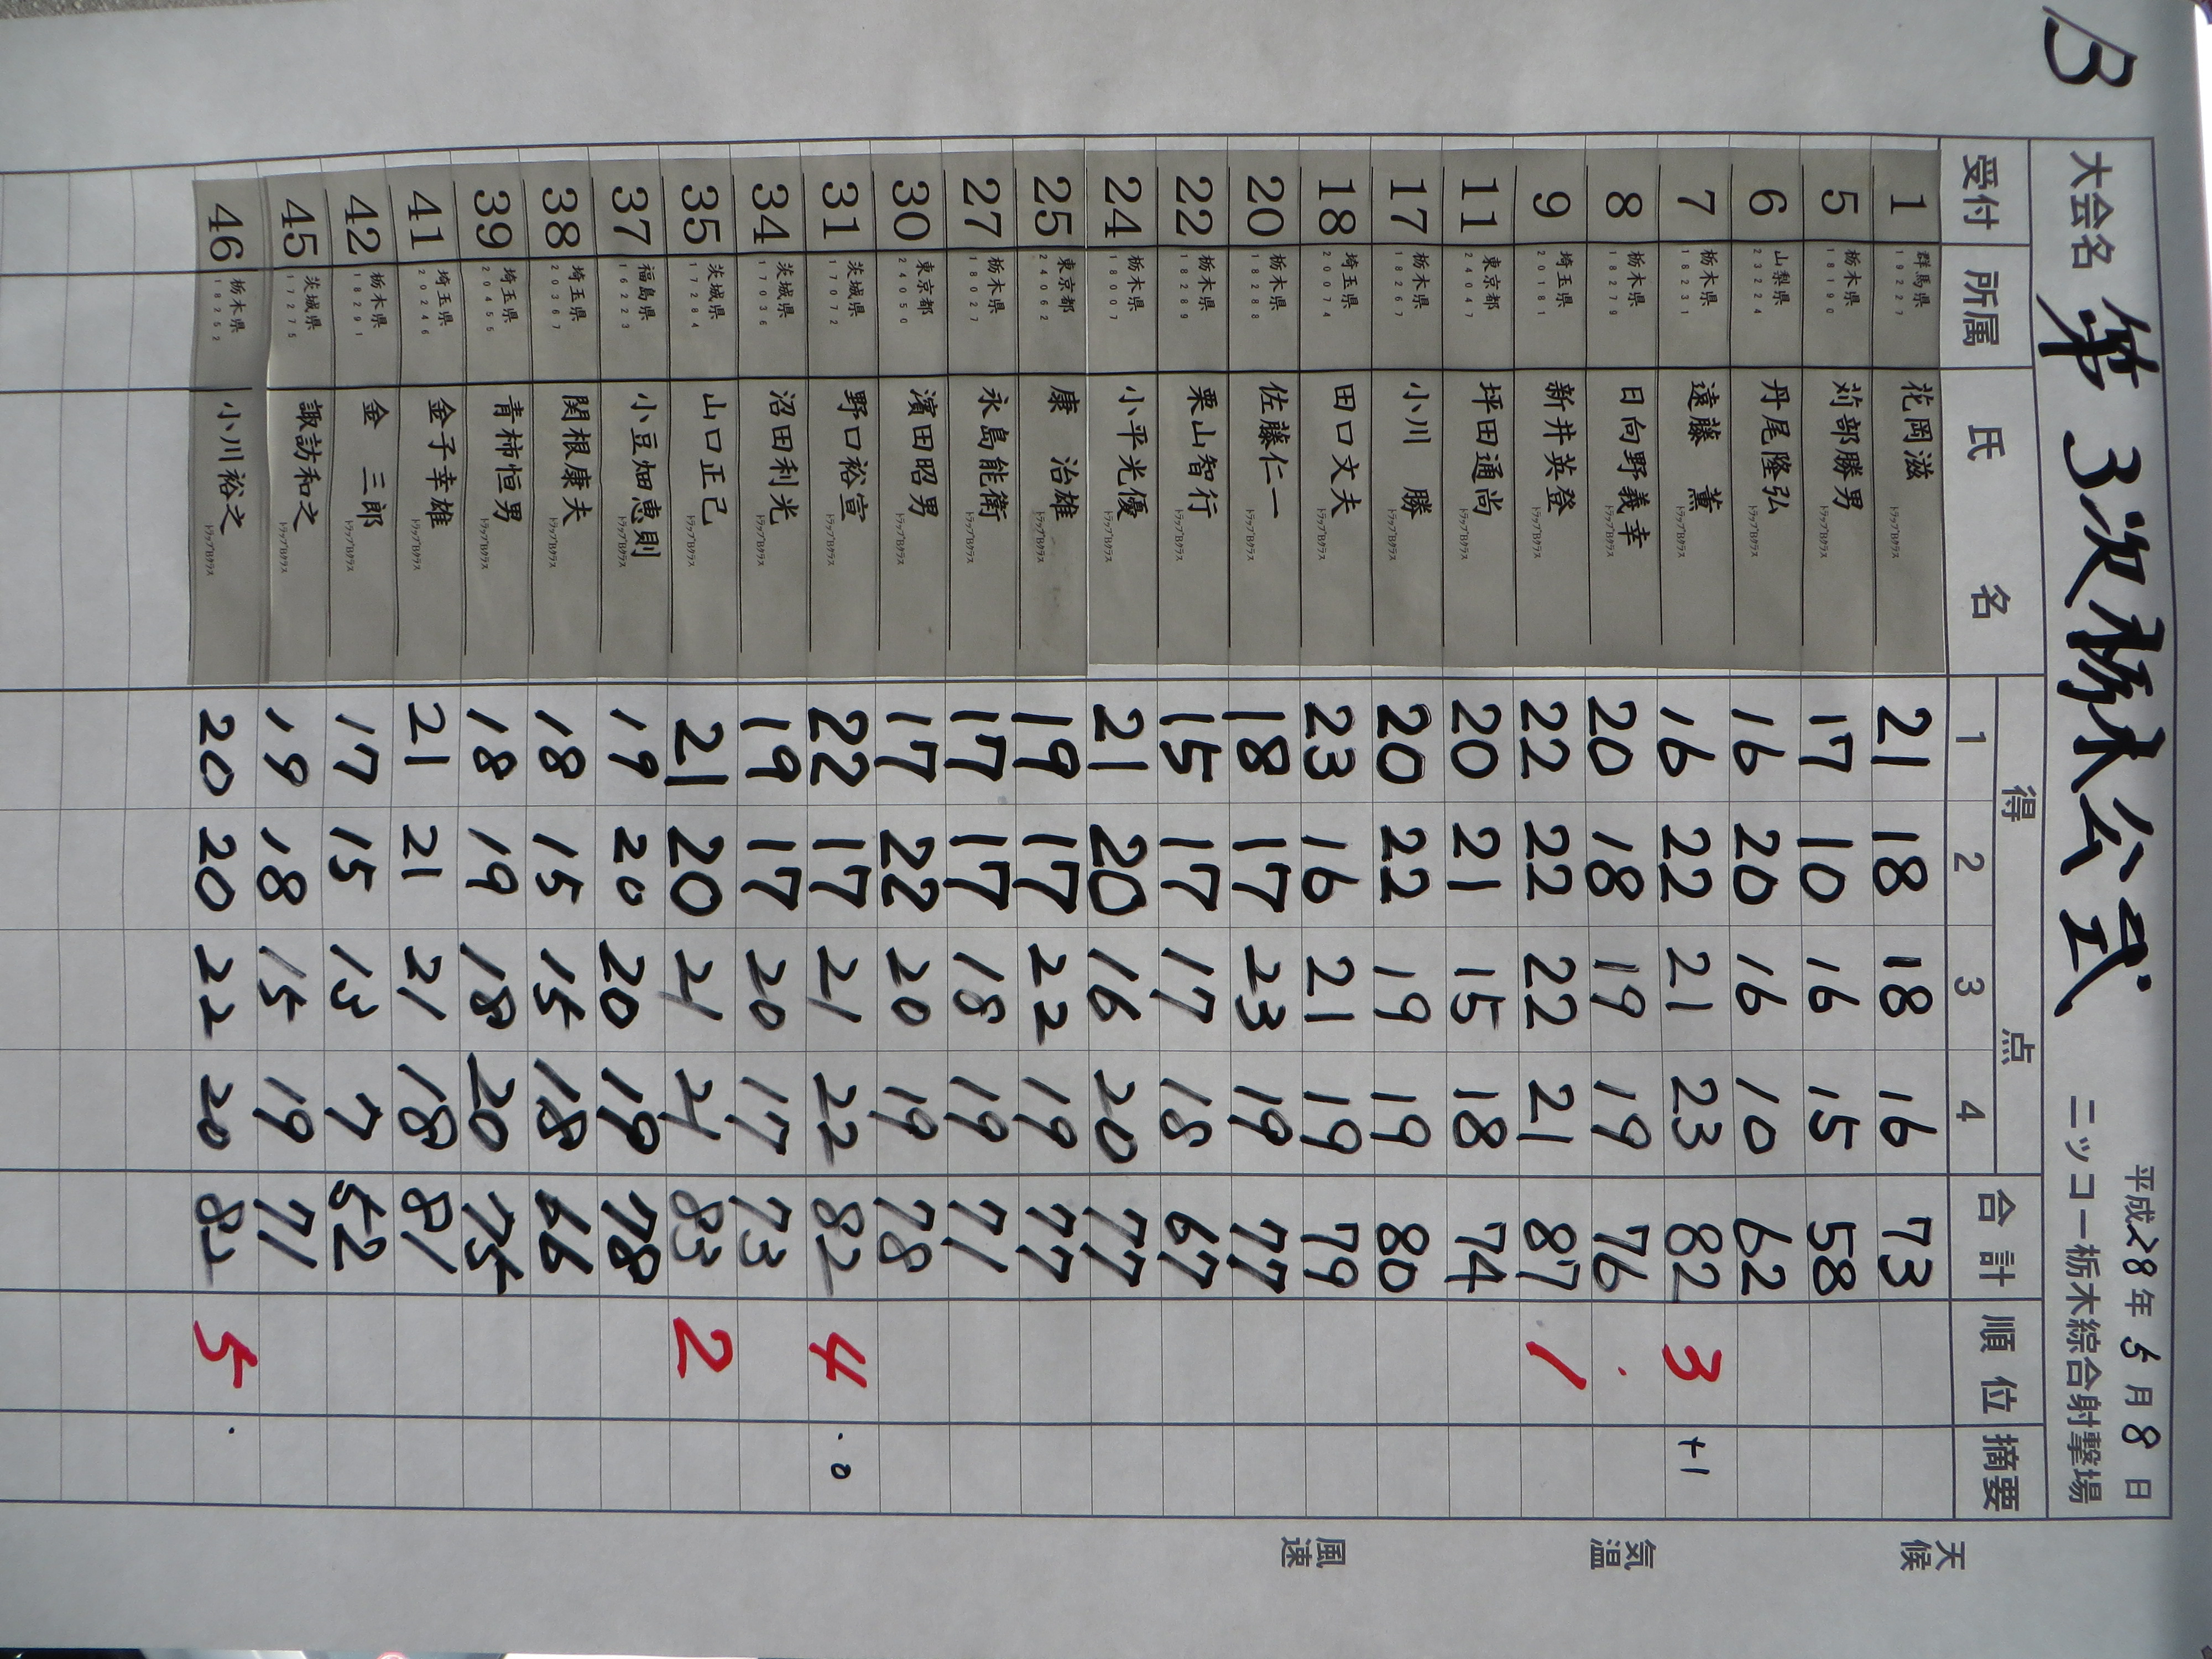 B
平成28年5月8日
大会名 第3次栃木公式 ニッコー栃木綜合射撃場
受付 所属 氏名 得点 合計 順位 摘要
1 2 3 4
1 群馬県 19227 花岡滋 トラップBクラス 21 18 18 16 73
5 栃木県 18190 苅部勝男 トラップBクラス 17 10 16 15 58
6 山梨県 23224 丹尾隆弘 トラップBクラス 16 20 16 10 62
7 栃木県 18231 遠藤 薫 トラップBクラス 16 22 21 23 82 3 +1
8 栃木県 18279 日向野義幸 トラップBクラス 20 18 19 19 76
9 埼玉県 20181 新井英登 トラップBクラス 22 22 22 21 87 1
11 東京都 24047 坪田通尚 トラップBクラス 20 21 15 18 74
17 栃木県 18267 小川 勝 トラップBクラス 20 22 19 19 80
18 埼玉県 20074 田口文夫 トラップBクラス 23 16 21 19 79
20 栃木県 18288 佐藤仁一 トラップBクラス 18 17 23 19 77
22 栃木県 18289 栗山智行 トラップBクラス 15 17 17 18 67
24 栃木県 18007 小平光優 トラップBクラス 21 20 16 20 77
25 東京都 24062 康 治雄 トラップBクラス 19 17 22 19 77
27 栃木県 18027 永島能衛 トラップBクラス 17 17 18 19 71
30 東京都 24050 濱田昭男 トラップBクラス 17 22 20 19 78
31 茨城県 17072 野口裕宣 トラップBクラス 22 17 21 22 82 4 0
34 茨城県 17036 沼田利光 トラップBクラス 19 17 20 17 73
35 茨城県 17284 山口正己 トラップBクラス 21 20 21 21 83 2
37 福島県 16223 小豆畑恵則 トラップBクラス 19 20 20 19 78
38 埼玉県 20367 関根康夫 トラップBクラス 18 15 15 18 66
39 埼玉県 20456 青柿恒男 トラップBクラス 18 19 18 20 75
41 埼玉県 20246 金子幸雄 トラップBクラス 21 21 21 18 81
42 栃木県 18291 金 三郎 トラップBクラス 17 15 13 7 52
45 茨城県 17275 諏訪和之 トラップBクラス 19 18 15 19 71
46 栃木県 18252 小川裕之 トラップBクラス 20 20 22 20 82 5
天候
気温
風速